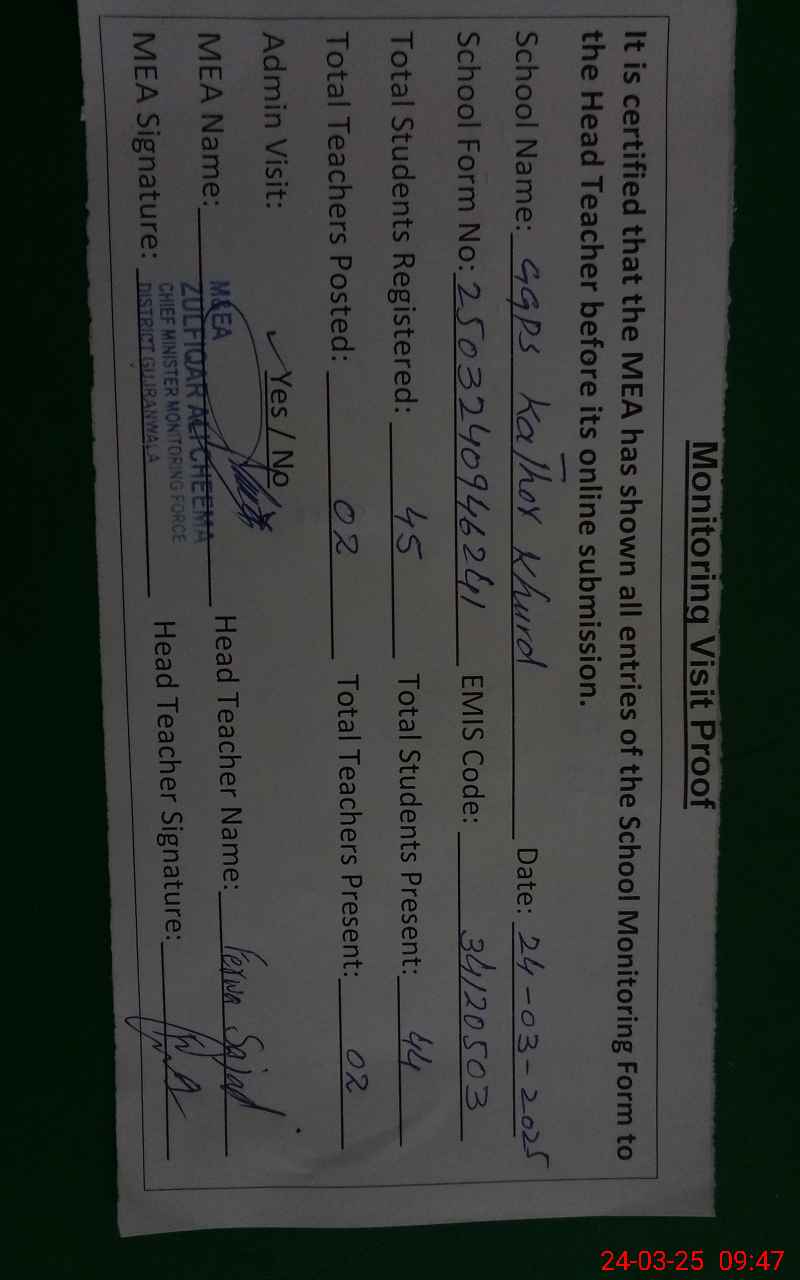 Monitoring Visit Proof
It is certified that the MEA has shown all entries of the School Monitoring Form to
the Head Teacher before its online submission.
School Name: GGPS Kathor Khurd Date: 24-03-2025
School Form No: 2503240946241 EMIS Code: 34120503
Total Students Registered: 45 Total Students Present: 44
Total Teachers Posted: 02 Total Teachers Present: 02
Admin Visit: ✓ Yes / No
MEA Name: Head Teacher Name: Sajad
MEA Signature: Head Teacher Signature:
M&EA
ZULFIQAR ALI CHEEMA
CHIEF MINISTER MONITORING FORCE
DISTRICT GUJRANWALA
24-03-25 09:47